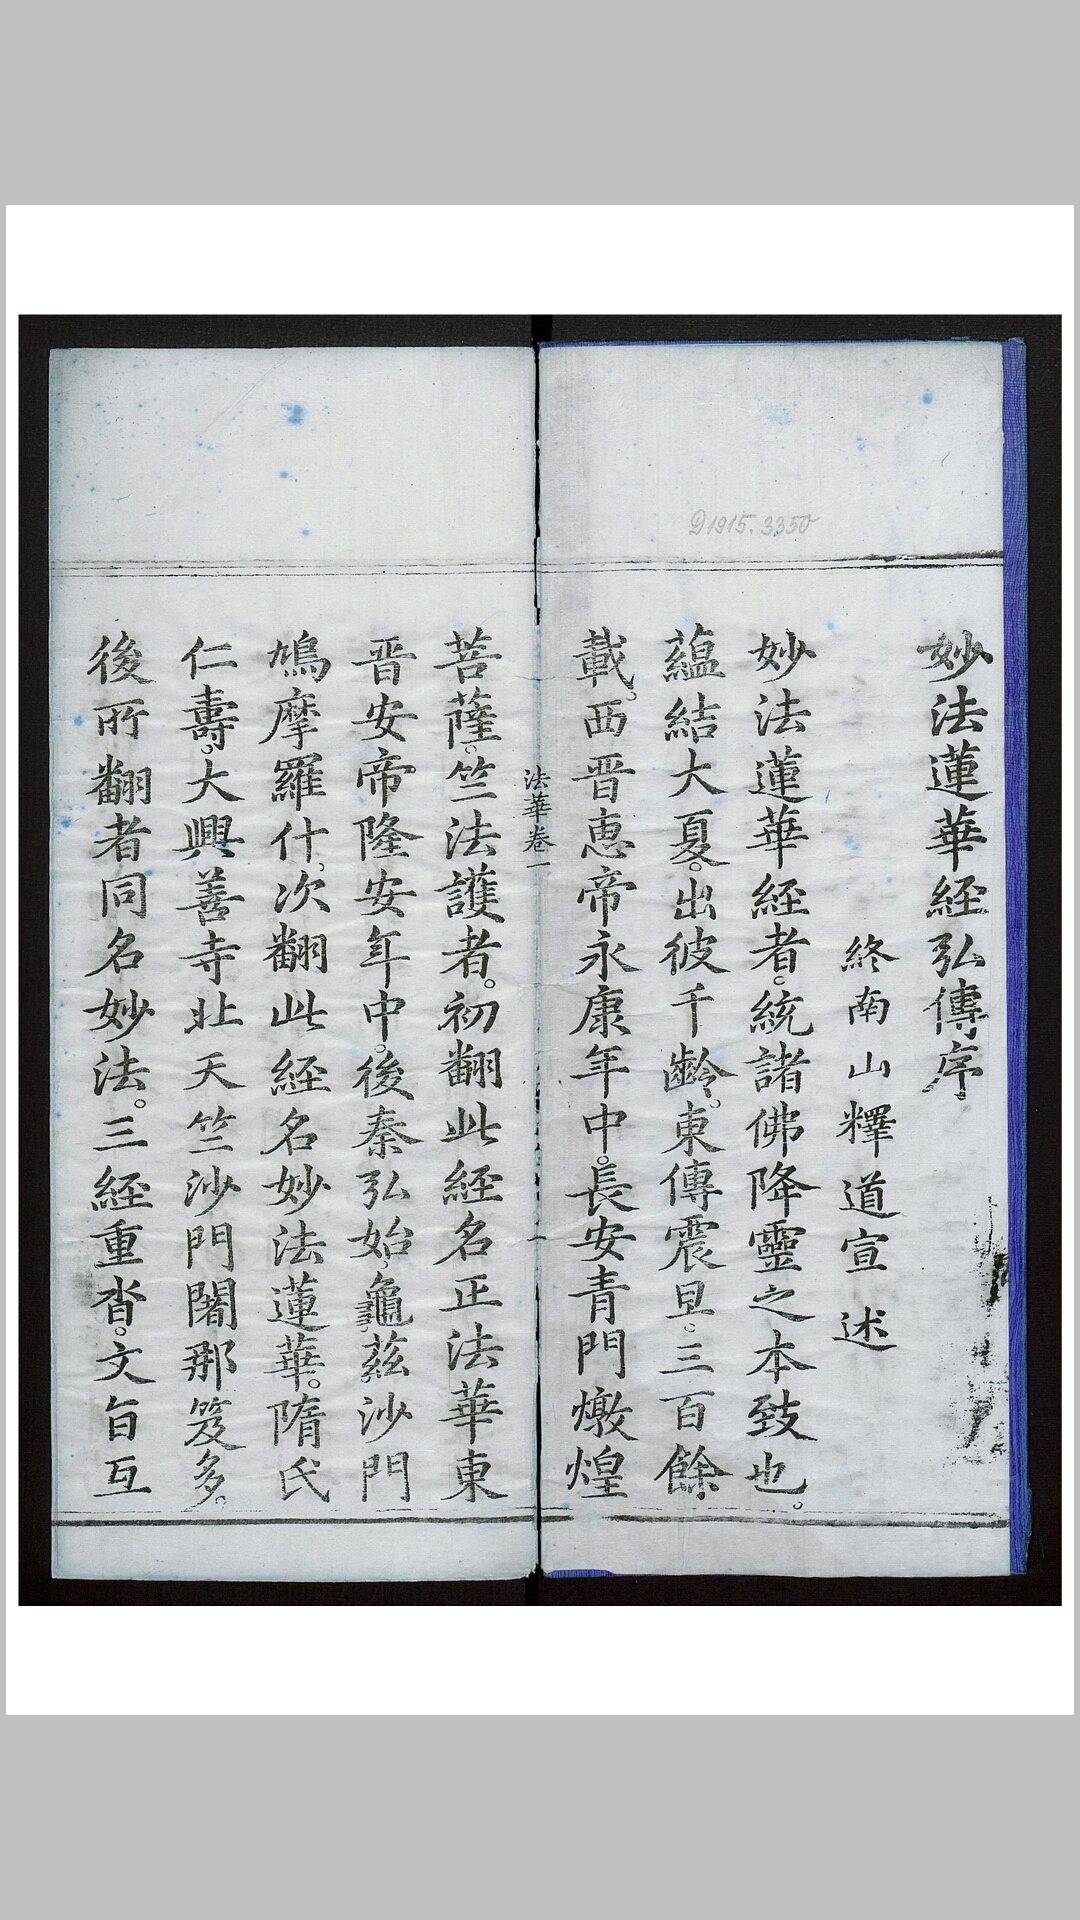 妙法蓮華經弘傳序
終南山釋道宣述
妙法蓮華經者。統諸佛降靈之本致也。
蘊結大夏。出彼千齡。東傳震旦。三百餘
載。西晋惠帝永康年中。長安青門燉煌
菩薩。竺法護者。初翻此經名正法華東
晋安帝隆安年中。後秦弘始龜茲沙門
鳩摩羅什。次翻此經名妙法蓮華。隋氏
仁壽。大興善寺北天竺沙門闍那笈多。
後所翻者同名妙法。三經重沓。文旨互
法華卷一
一
D1915.3350